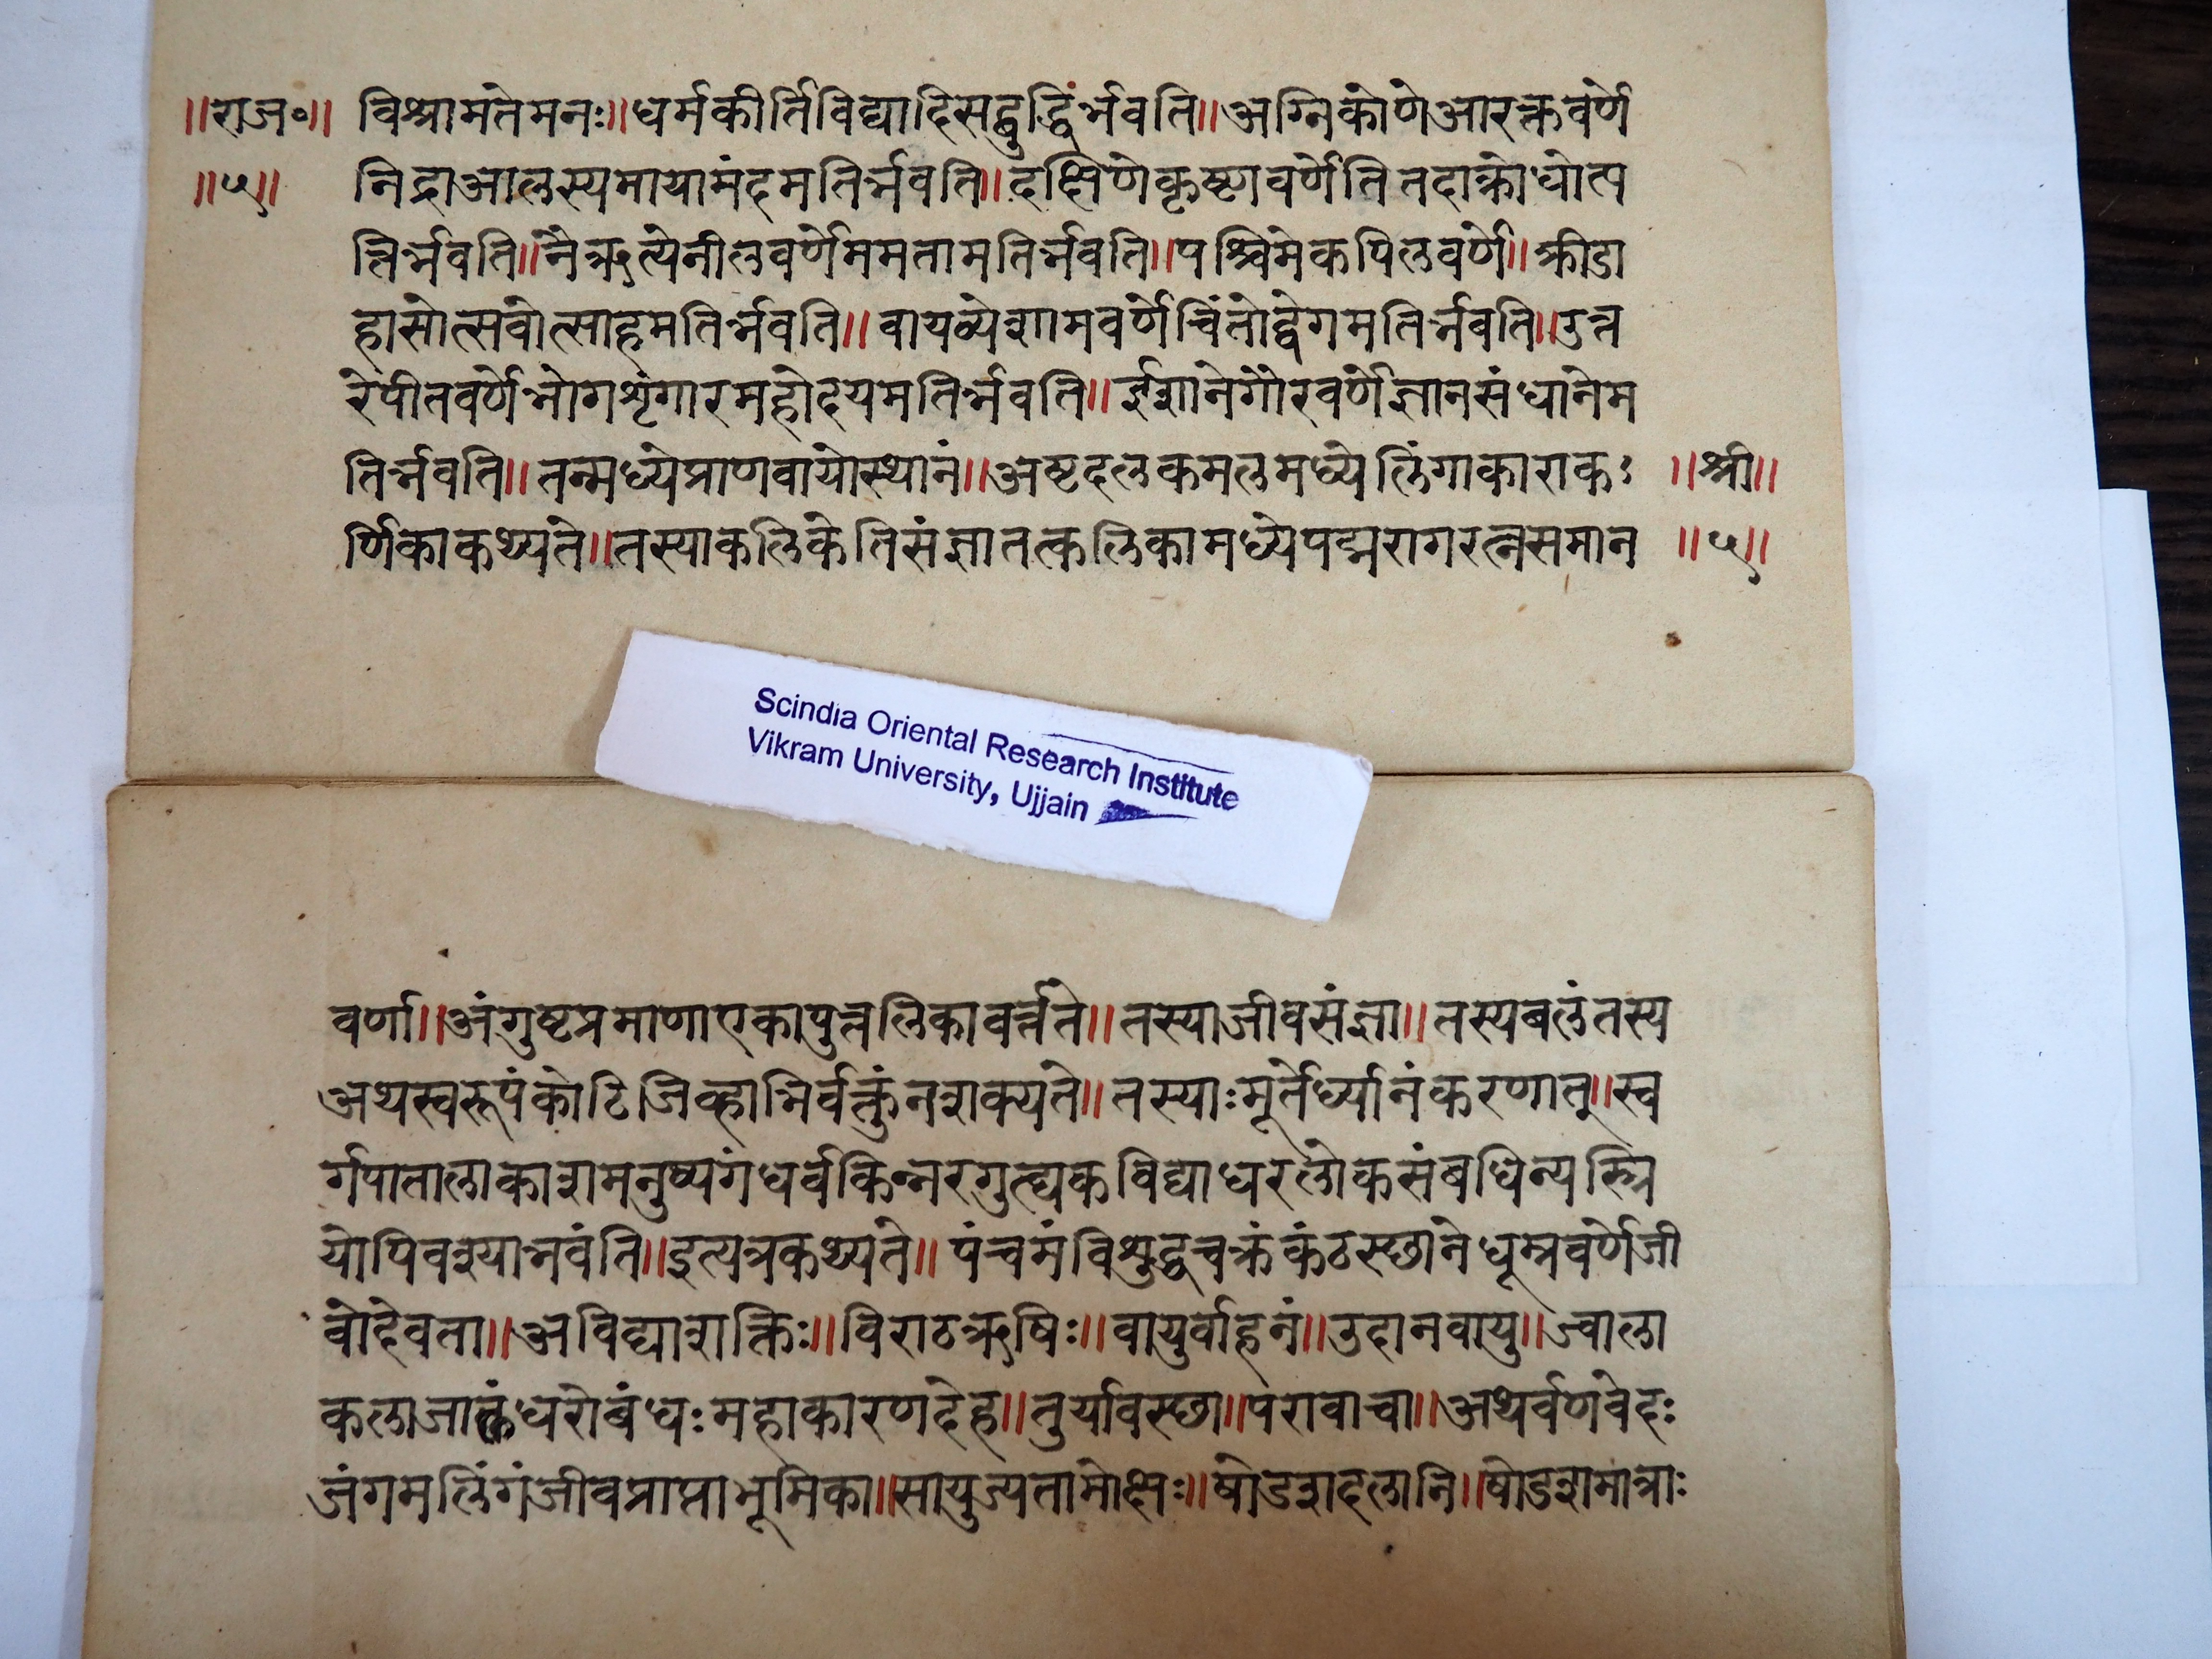 ॥राज॰॥ विश्रामतेमनः॥धर्मकीर्तिविद्यादिसद्बुद्धिर्भवति॥अग्निकोणेआरक्तवर्णे
॥५॥ निद्राआलस्यमायामंदमतिर्भवति॥दक्षिणेकृष्णवर्णेतितदाक्रोधोत्प
त्तिर्भवति॥नैऋत्येनीलवर्णेममतामतिर्भवति॥पश्चिमेकपिलवर्णे॥क्रीडा
हासोत्सवोत्साहमतिर्भवति॥वायव्येशामवर्णेचिंतोद्वेगमतिर्भवति॥उत्त
रेपीतवर्णेभोगशृंगारमहोदयमतिर्भवति॥ईशानेगौरवर्णेज्ञानसंधानेम
तिर्भवति॥तन्मध्येप्राणवायोस्थानं॥अष्टदलकमलमध्येलिंगाकाराकः ॥श्री॥
र्णिकाकथ्यते॥तस्याकलिकेतिसंज्ञातत्कलिकामध्येपद्मरागरत्नसमान ॥५॥
Scindia Oriental Research Institute
Vikram University, Ujjain
वर्णा॥अंगुष्टप्रमाणाएकापुत्तलिकावर्त्तते॥तस्याजीवसंज्ञा॥तस्यबलंतस्य
अथस्वरूपंकोटिजिव्हाभिर्वक्तुंनशक्यते॥तस्याःमूर्तेर्ध्यानंकरणात्॥स्व
र्गपातालाकाशमनुष्यगंधर्वकिन्नरगुत्द्यकविद्याधरलोकसंबधिन्यस्त्रि
योपिवश्याभवंति॥इत्यत्रकथ्यते॥पंचमंविशुद्धचक्रंकंठस्छानेधूम्रवर्णेजी
वोदेवता॥अविद्याशक्तिः॥विराठऋषिः॥वायुर्वाहनं॥उदानवायु॥ज्वाला
कलाजालंधरोबंधःमहाकारणदेह॥तुर्यावस्छा॥परावाचा॥अथर्वणवेदः
जंगमलिंगंजीवप्राप्ताभूमिका॥सायुज्यतामोक्षः॥षोडशदलानि॥षोडशमात्राः